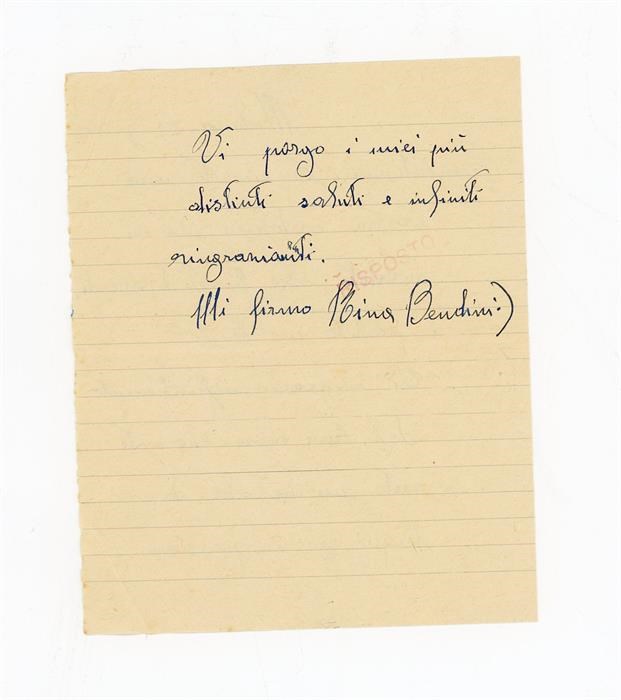 Vi porgo i miei più
distinti saluti e infiniti
ringraziamenti.
Mi firmo Rina Bendini
RISPOSTO